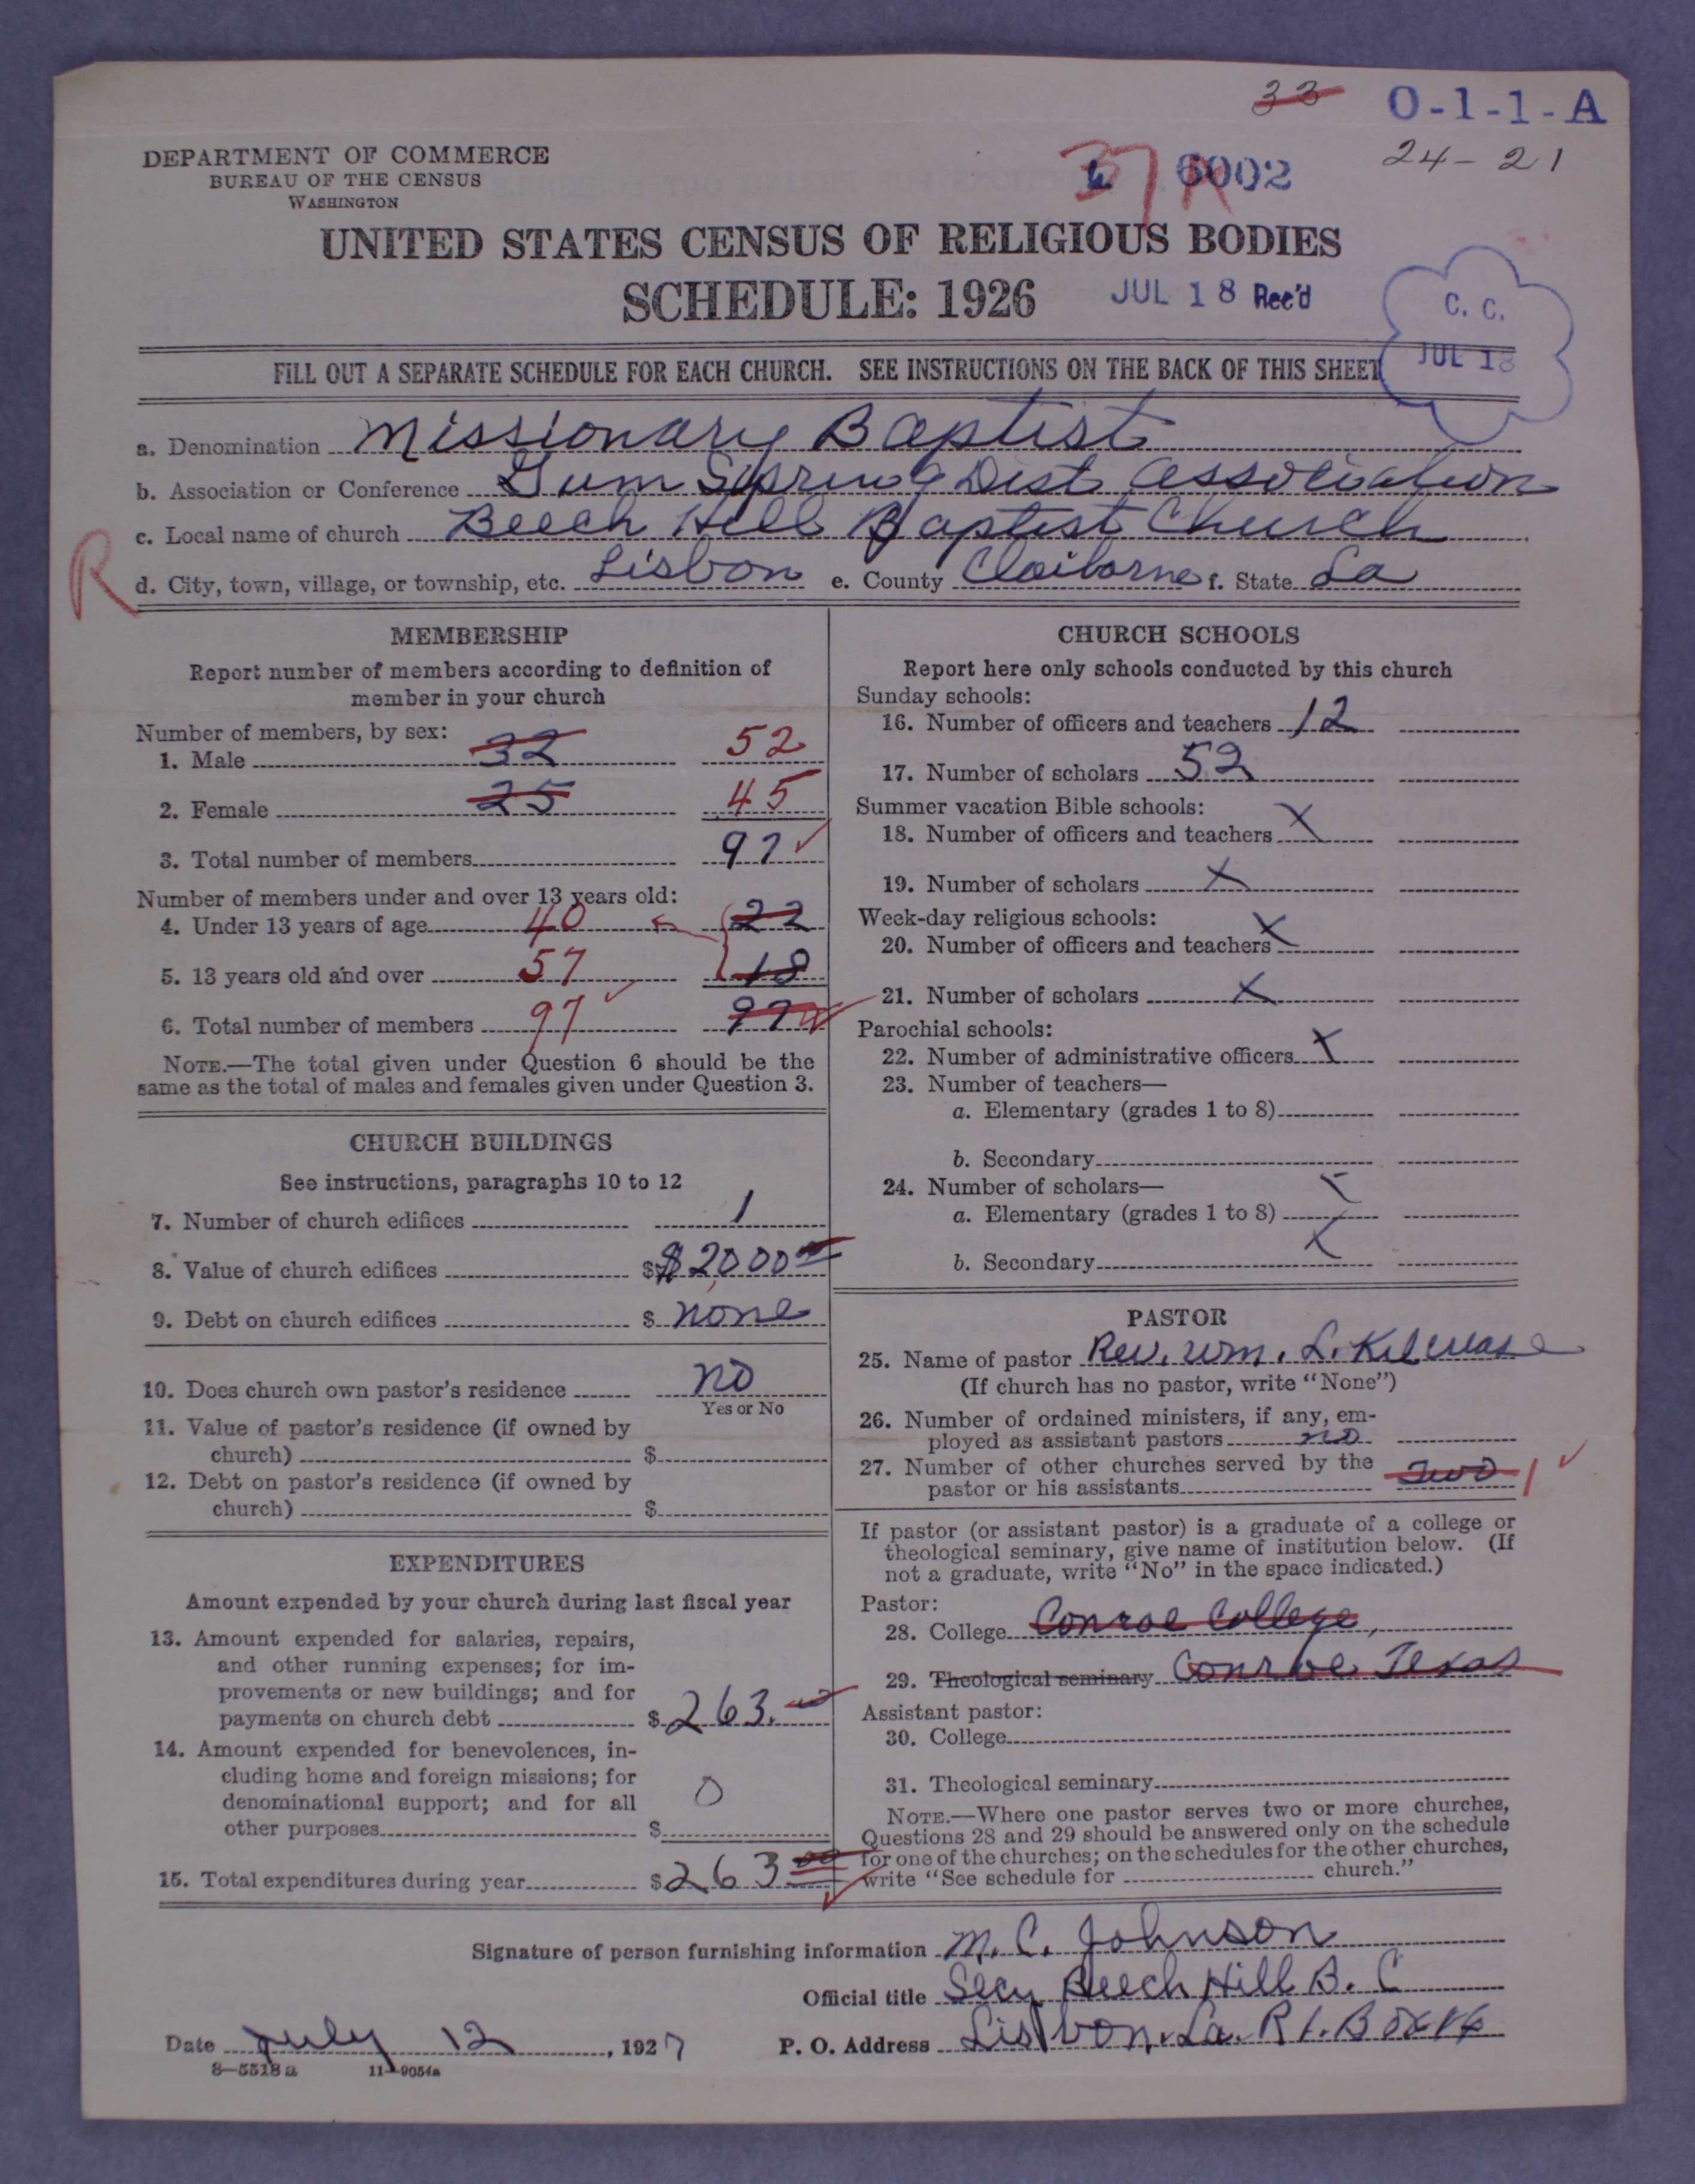 33 O-1-1-A
24-21
DEPARTMENT OF COMMERCE
BUREAU OF THE CENSUS
WASHINGTON
37 A 6002
UNITED STATES CENSUS OF RELIGIOUS BODIES
SCHEDULE: 1926
JUL 18 Rec'd
C. C.
JUL 18
FILL OUT A SEPARATE SCHEDULE FOR EACH CHURCH. SEE INSTRUCTIONS ON THE BACK OF THIS SHEET
a. Denomination Missionary Baptist
b. Association or Conference Gum Spring Dist Association
c. Local name of church Beech Hill Baptist Church
R
d. City, town, village, or township, etc. Lisbon e. County Claiborne f. State La
MEMBERSHIP
Report number of members according to definition of
member in your church
Number of members, by sex:
1. Male 32 52
2. Female 25 45
3. Total number of members 97
Number of members under and over 13 years old:
4. Under 13 years of age 40 22
5. 13 years old and over 57 18
6. Total number of members 97 97
NOTE.—The total given under Question 6 should be the
same as the total of males and females given under Question 3.
CHURCH BUILDINGS
See instructions, paragraphs 10 to 12
7. Number of church edifices 1
8. Value of church edifices $ $2000 00
9. Debt on church edifices $ none
10. Does church own pastor's residence no
Yes or No
11. Value of pastor's residence (if owned by
church) $
12. Debt on pastor's residence (if owned by
church) $
EXPENDITURES
Amount expended by your church during last fiscal year
13. Amount expended for salaries, repairs,
and other running expenses; for im-
provements or new buildings; and for
payments on church debt $ 263. 00
14. Amount expended for benevolences, in-
cluding home and foreign missions; for
denominational support; and for all
other purposes $ 0
15. Total expenditures during year $ 263 00
CHURCH SCHOOLS
Report here only schools conducted by this church
Sunday schools:
16. Number of officers and teachers 12
17. Number of scholars 52
Summer vacation Bible schools:
18. Number of officers and teachers X
19. Number of scholars X
Week-day religious schools:
20. Number of officers and teachers X
21. Number of scholars X
Parochial schools:
22. Number of administrative officers X
23. Number of teachers—
a. Elementary (grades 1 to 8)
b. Secondary
24. Number of scholars—
a. Elementary (grades 1 to 8) X
b. Secondary X
PASTOR
25. Name of pastor Rev. Wm. L.
(If church has no pastor, write "None")
26. Number of ordained ministers, if any, em-
ployed as assistant pastors no
27. Number of other churches served by the
pastor or his assistants Two 1
If pastor (or assistant pastor) is a graduate of a college or
theological seminary, give name of institution below. (If
not a graduate, write "No" in the space indicated.)
Pastor:
28. College Conroe College,
29. Theological seminary Conroe Texas
Assistant pastor:
30. College
31. Theological seminary
NOTE.—Where one pastor serves two or more churches,
Questions 28 and 29 should be answered only on the schedule
for one of the churches; on the schedules for the other churches,
write "See schedule for church."
Signature of person furnishing information M. C. Johnson
Official title Secy Beech Hill B. C
Date July 12, 1927 P. O. Address Lisbon, La. R 1. Box
8—5518 a 11—9054a